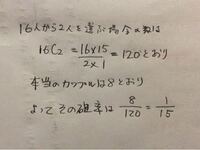 16人から2人を選ぶ場合の数は
16C2 = 16×15/2×1 = 120とおり
本当のカップルは8とおり
よってその確率は 8/120 = 1/15